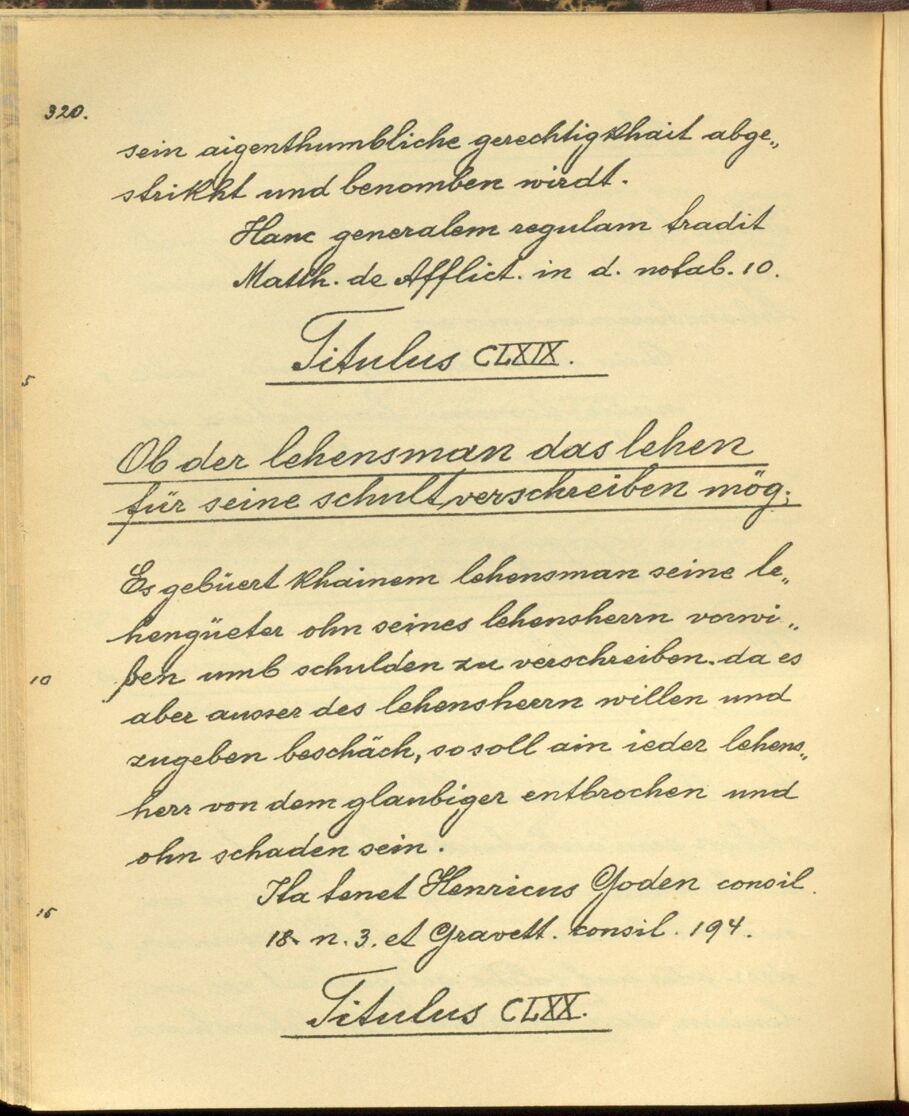 320.
sein aigenthumbliche gerechtigkhait abge„
strikht und benomben wirdt.
Hanc generalem regulam tradit
Matth. de Afflict. in d. notab. 10.
Titulus CLXIX.
5
Ob der lehensman das lehen
für seine schult verschreiben mög.
Es gebüert khainem lehensman seine le„
hengüeter ohn seines lehensherrn vorwi„
ßen umb schulden zu verschreiben. da es
10
aber ausser des lehensherrn willen und
zugeben beschäch, so soll ain ieder lehens„
herr von dem glaubiger entbrochen und
ohn schaden sein.
Ita tenet Henricus Goden consil.
15
18. n. 3. et Gravett. consil. 194.
Titulus CLXX.